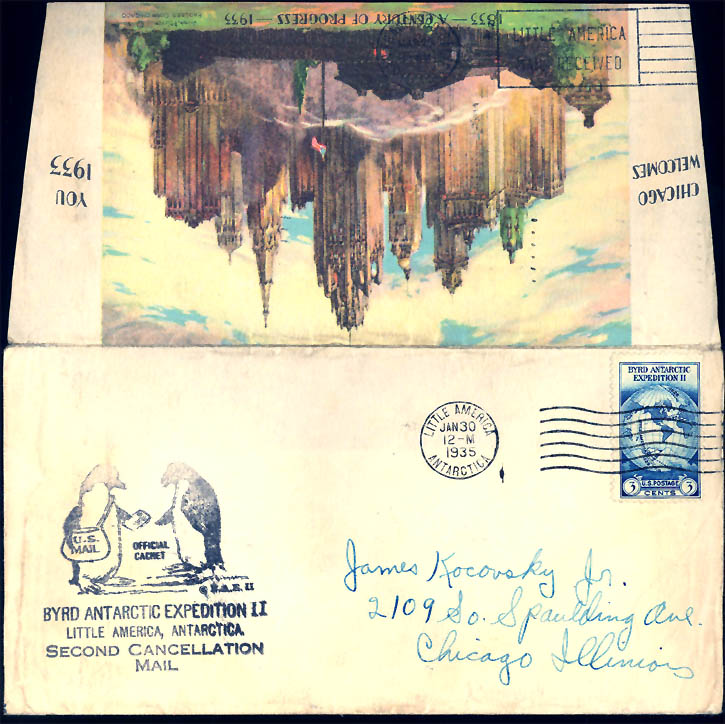 1833 — A CENTURY OF PROGRESS — 1933
LITTLE AMERICA
RECEIVED
CHICAGO
WELCOMES
YOU
1933
LITTLE AMERICA
JAN 30
12-M
1935
ANTARCTICA
BYRD ANTARCTIC
EXPEDITION II
3 U.S. POSTAGE 3
CENTS
U.S.
MAIL
OFFICIAL
CACHET
B.A.E. II
BYRD ANTARCTIC EXPEDITION II
LITTLE AMERICA, ANTARCTICA.
SECOND CANCELLATION
MAIL
James Kocovsky Jr.
2109 So. Spaulding Ave.
Chicago Illinois